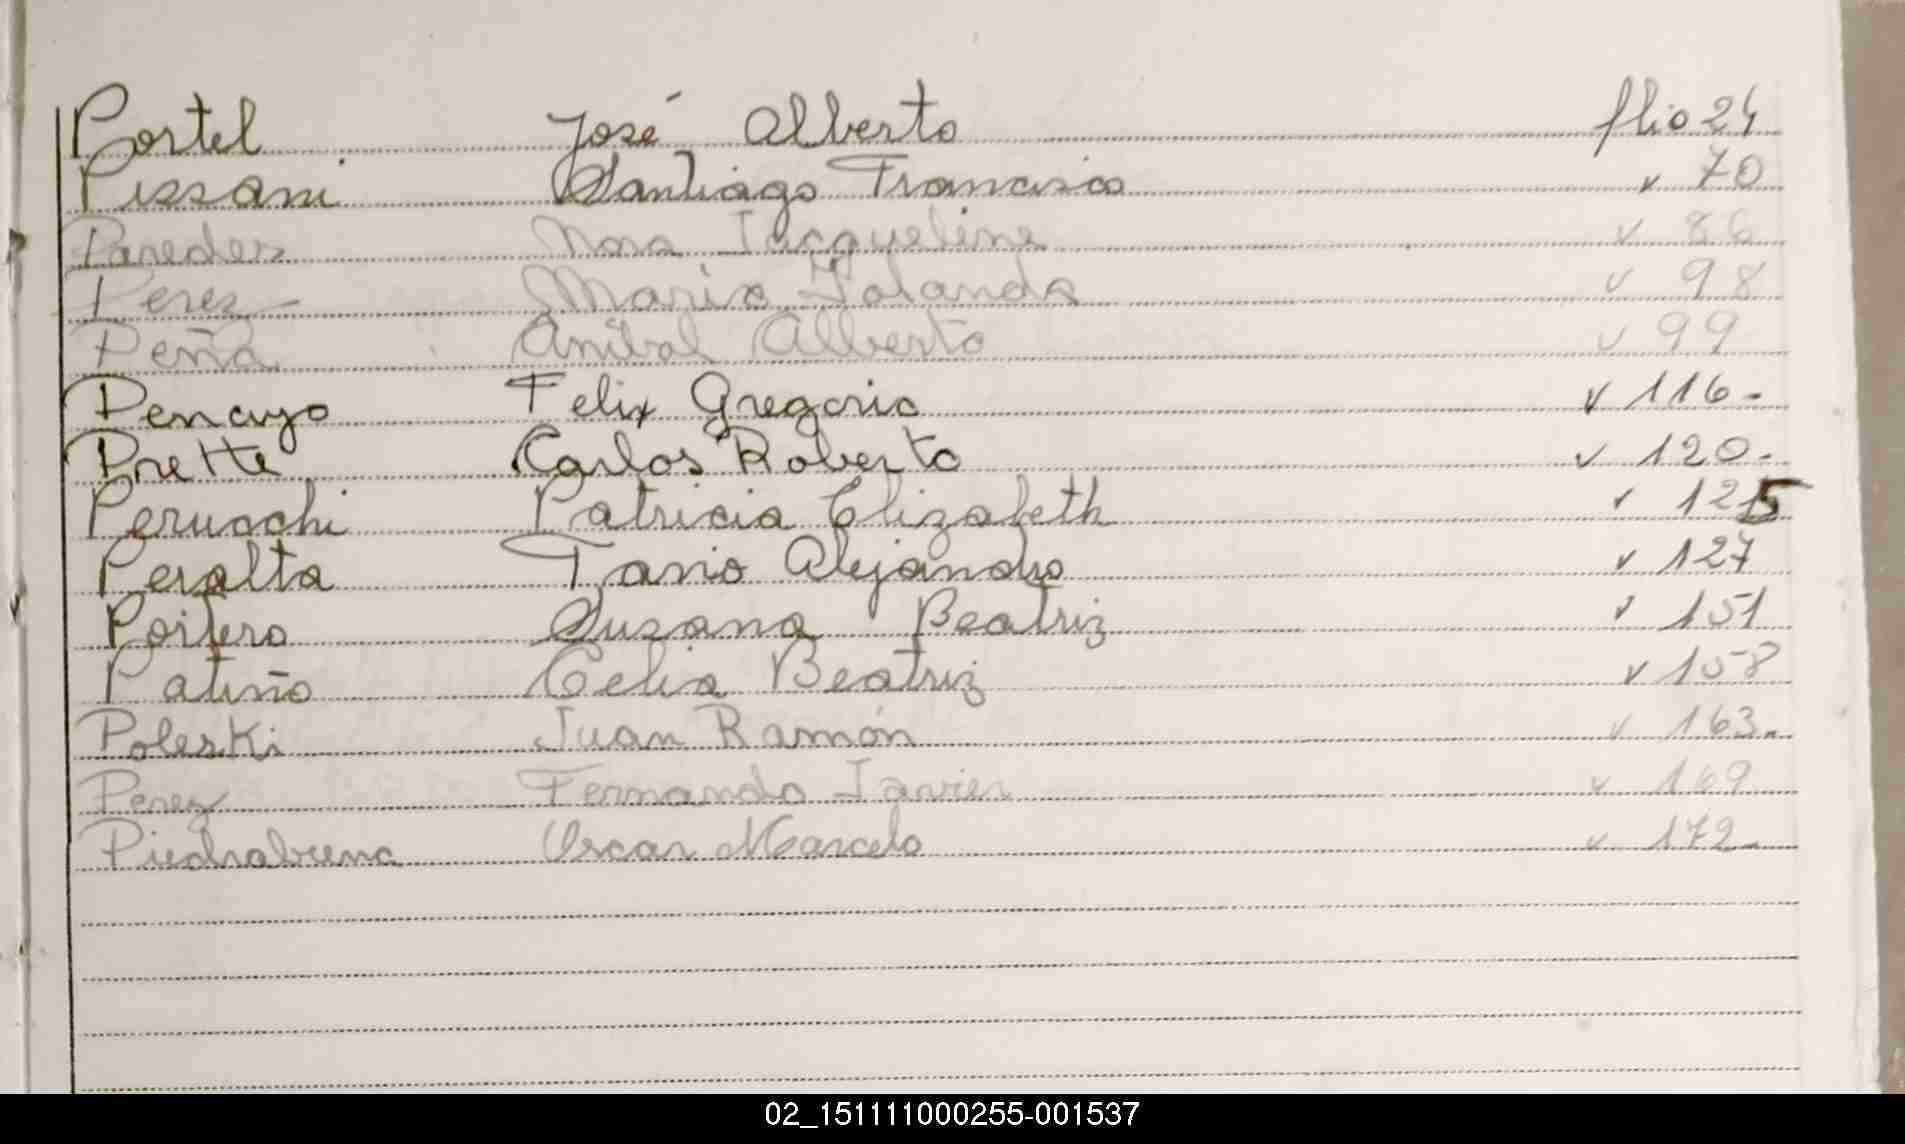 Portel José Alberto flio 24
Pissani Santiago Francisco v 70
Paredes Nora Jacqueline v 86
Perez Maria Yolanda v 98
Peña Anibal Alberto v 99
Penayo Felix Gregorio v 116-
Prette Carlos Roberto v 120-
Perucchi Patricia Elizabeth v 125
Peralta Tanio Alejandro v 127
Portero Susana Beatriz v 151
Patiño Celia Beatriz v 158
Poleski Juan Ramón v 163-
Perez Fernando Javier v 169
Piedrabuena Oscar Marcelo v 172-
02_151111000255-001537